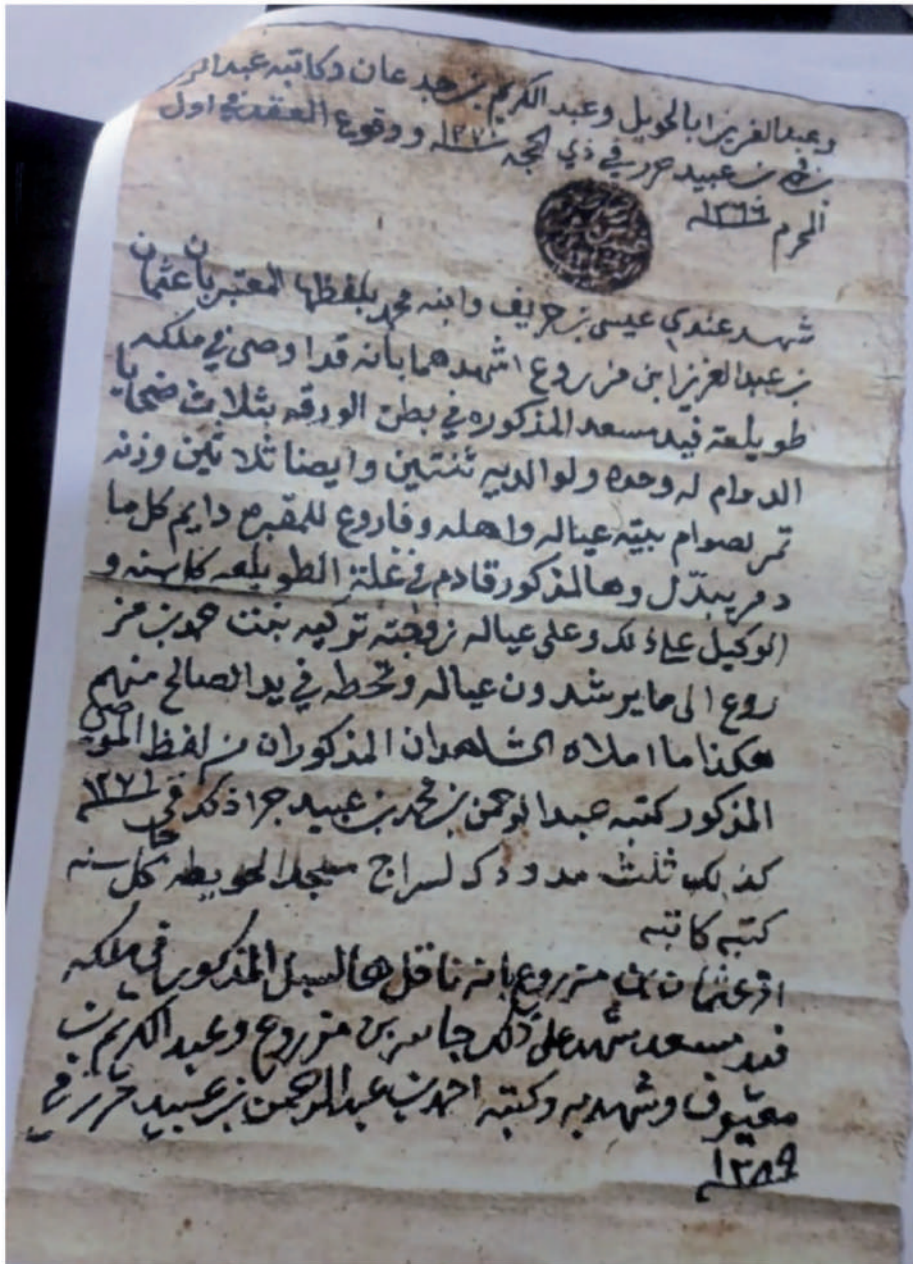 وعبد العزيز ابا الحويل وعبد الكريم بن جدعان وكاتبه عبد الر
بن عبيد حرر في ذي الحجه ١٢٧١ ووقوع العقد في اول
المحرم ١٢٦٦
شهد عندي عيسى بن حريف وابنه محمد بلفظها المعتبر بان عثمان
بن عبد العزيز ابن مزروع اشهدهما بانه قد اوصى في ملكه
طويلعة فيد مسعد المذكوره في بطن الورقه بثلاث ضحايا
الدوام له وحده ولوالديه ثنتين وايضا ثلاثين وزنه
تمر لصوام بيته عياله واهله وفاروع للمقبره دايم كل ما
دمر يبدل وهالمذكور قادم في غلة الطويلعه كل سنه و
الوكيل على ذلك وعلى عياله زوجته تركيه بنت حمد بن مز
روع الى ما يرشدون عياله وتحطه في يد الصالح منهم
هكذا ما املاه الشاهدان المذكوران من لفظ الموصي
المذكور كتبه عبد الرحمن بن محمد بن عبيد جرا ذلك في ١٢٧١
كذلك ثلث مد ودك لسراج مسجد الحويطه كل سنه
كتبه كاتبه
اقر عثمان بن مزروع بانه ناقل هالسبل المذكور في ملكه
فيد مسعد شهد على ذلك جاسر بن مزروع وعبد الكريم بن
معيوف وشهد به وكتبه احمد بن عبد الرحمن بن عبيد حرر في
١٢٨٩